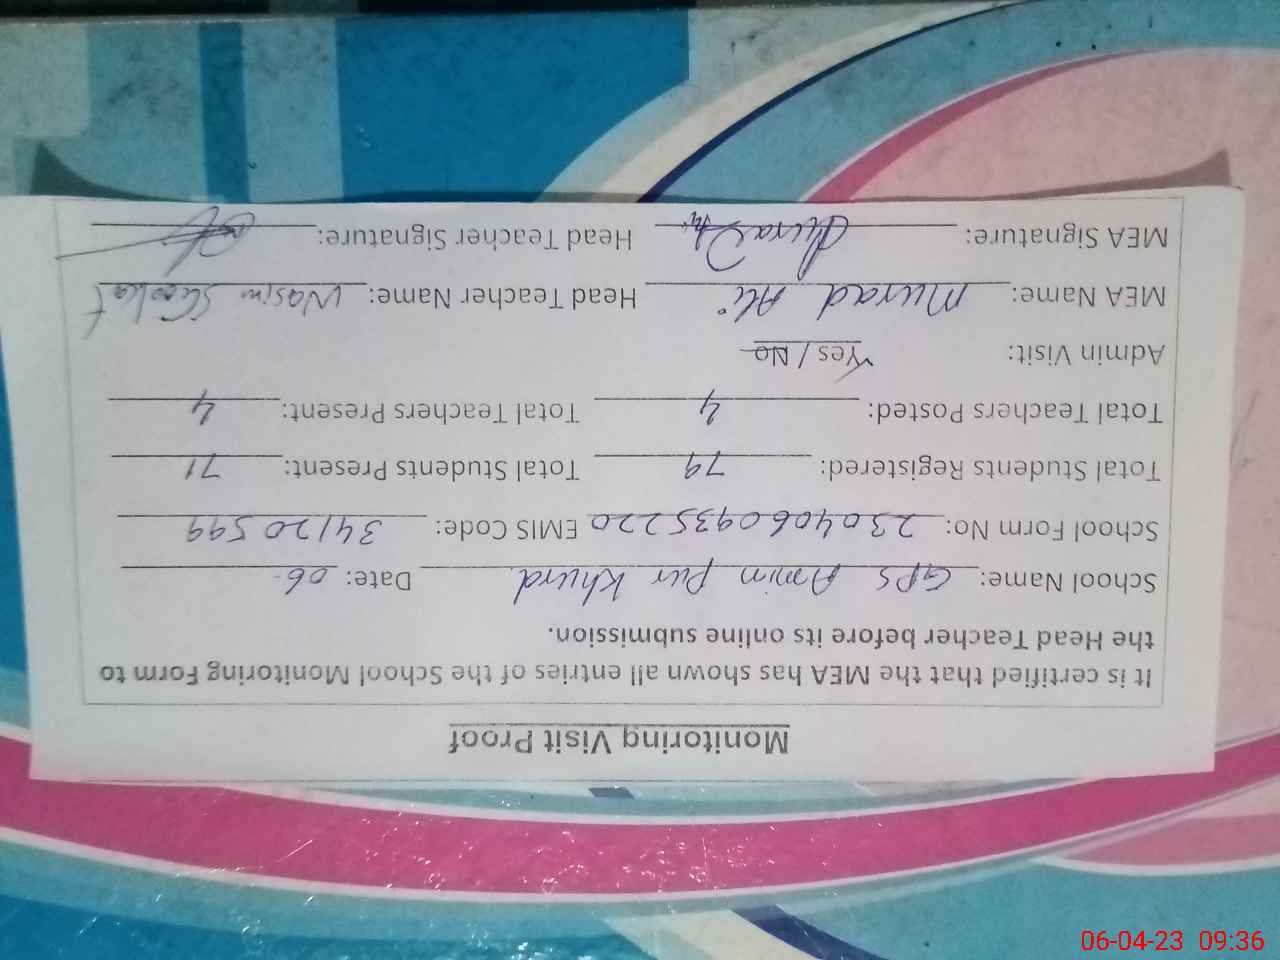 Monitoring Visit Proof
It is certified that the MEA has shown all entries of the School Monitoring Form to
the Head Teacher before its online submission.
School Name: GPS Amin Pur Khurd Date: 06-
School Form No: 2304060935220 EMIS Code: 34120599
Total Students Registered: 79 Total Students Present: 71
Total Teachers Posted: 4 Total Teachers Present: 4
Admin Visit: Yes / No
MEA Name: Murad Ali Head Teacher Name: Wasim Shaukat
MEA Signature: Head Teacher Signature:
06-04-23 09:36